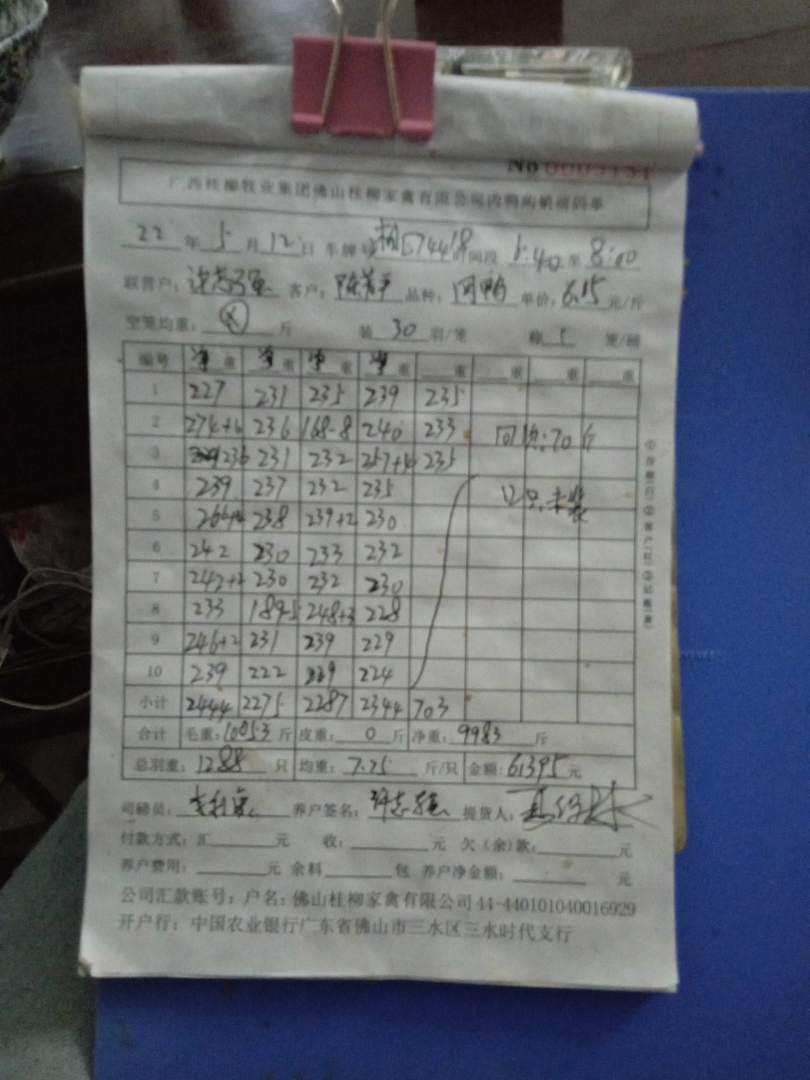 No 0005151
广西桂柳牧业集团佛山桂柳家禽有限公司肉鸭购销磅码单
22 年 5 月 12 日 车牌号 时间段 6:40 至 8:00
联营户: 客户: 品种: 单价: 6.15 元/斤
空笼均重: 斤 装 30 羽/笼 称 5 笼/磅
编号 净重 净重 净重 净重 重 重 重 重
1 227 231 235 239 235
2 274+6 236 168-8 240 233 70斤
3 236 231 232 257+4 235
4 239 237 232 235 12只未装
5 238 239+2 230
6 242 230 233 232
7 242+2 230 232 230
8 233 189-5 248+3 228
9 246+2 231 239 229
10 239 222 224
小计 2444 2275 2287 2344 703
合计 毛重: 10053 斤 皮重: 0 斤 净重: 9983 斤
总羽重: 1288 只 均重: 7.75 斤/只 金额: 61395 元
司磅员: 养户签名: 许志强 提货人:
付款方式: 汇 元 收: 元 欠(余)款: 元
养户费用: 元 余料 包 养户净金额: 元
公司汇款账号: 户名: 佛山桂柳家禽有限公司 44-440101040016929
开户行: 中国农业银行广东省佛山市三水区三水时代支行
①存根(白)②客户(红)③记账(黄)